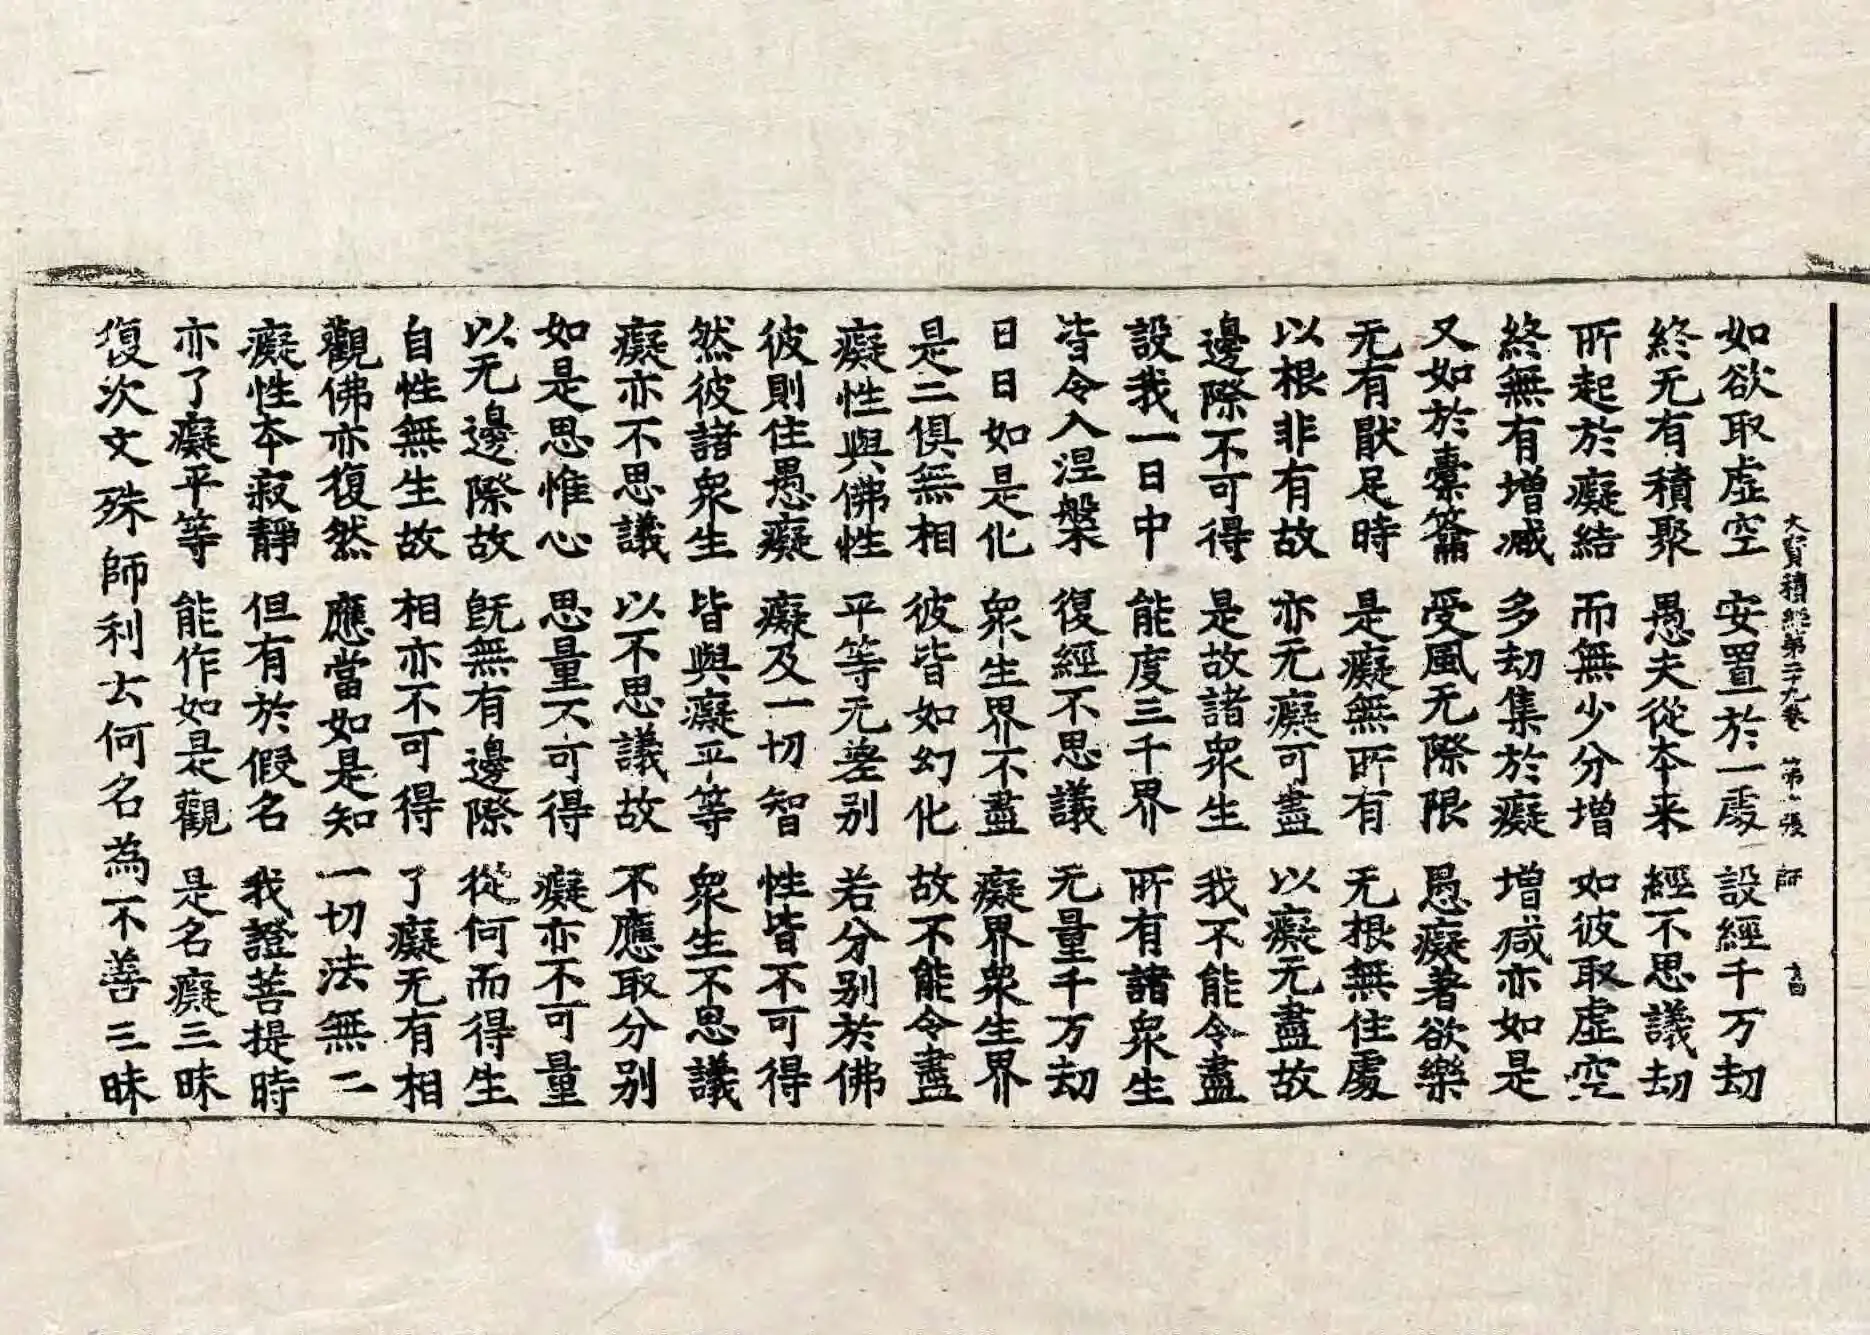 大寶積經第二十九卷 第 張 師
如欲取虛空 安置於一處 設經千万劫
終无有積聚 愚夫從本来 經不思議劫
所起於癡結 而無少分增 如彼取虛空
終無有增減 多劫集於癡 增減亦如是
又如於橐籥 受風无際限 愚癡著欲樂
无有猒足時 是癡無所有 无根無住處
以根非有故 亦无癡可盡 以癡无盡故
邊際不可得 是故諸衆生 我不能令盡
設我一日中 能度三千界 所有諸衆生
皆令入涅槃 復經不思議 无量千万劫
日日如是化 衆生界不盡 癡界衆生界
是二俱無相 彼皆如幻化 故不能令盡
癡性與佛性 平等无差别 若分别於佛
彼則住愚癡 癡及一切智 性皆不可得
然彼諸衆生 皆與癡平等 衆生不思議
癡亦不思議 以不思議故 不應取分别
如是思惟心 思量不可得 癡亦不可量
以无邊際故 旣無有邊際 從何而得生
自性無生故 相亦不可得 了癡无有相
觀佛亦復然 應當如是知 一切法無二
癡性本寂靜 但有於假名 我證菩提時
亦了癡平等 能作如是觀 是名癡三昧
復次文殊師利云何名為不善三昧